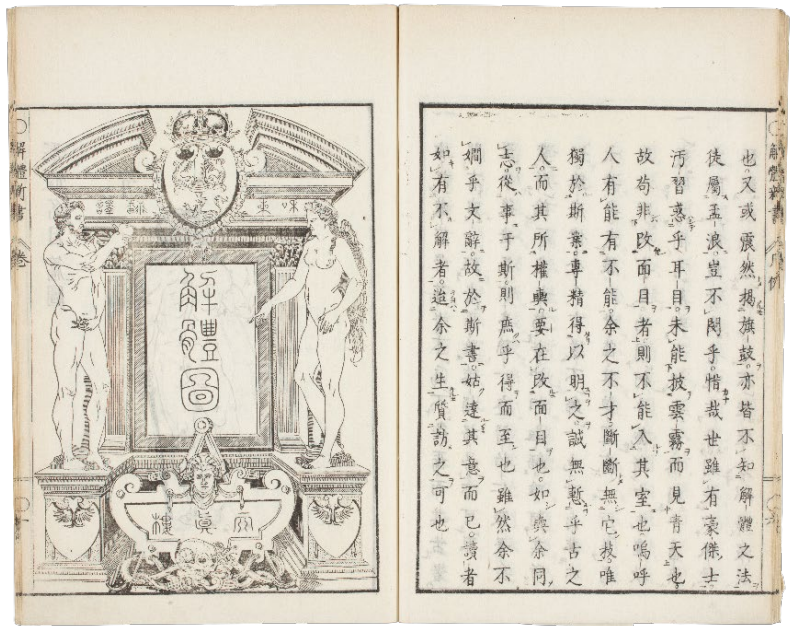 解體新書
凡例
也又或震然揭旗鼓。亦皆不知解體之法
徒屬孟浪。豈不閔乎。惜哉世雖有豪傑士
汚習惑乎耳目。未能披雲霧而見青天也
故苟非改面目者。則不能入其室也嗚呼
人有能有不能。余之不才。斷斷無它技唯
獨於斯業。專精得以明之。誠無慙乎古之
人。而其所權輿。要在改面目也。如與余同
志。從事乎斯。則庶乎得而至也雖然余不
嫺乎文辭。故於斯書。姑達其意而已。讀者
如有不解者。迨余之生質訪之可也
解體圖
天眞樓
解體新書
卷